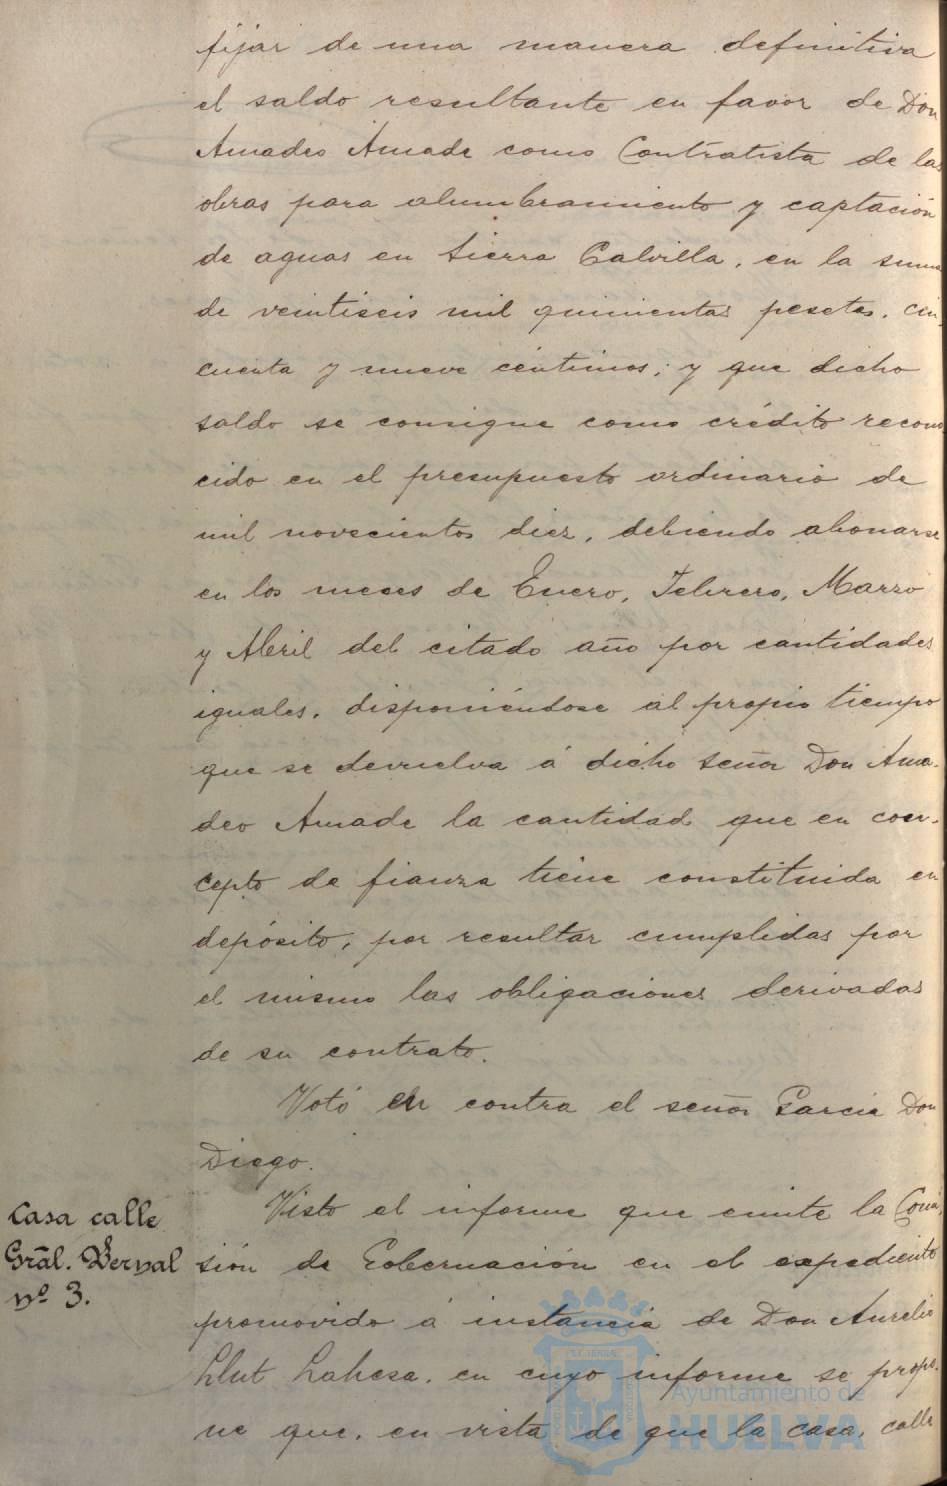 fijar de una manera definitiva
el saldo resultante en favor de Don
Amadeo Amade como Contratista de las
obras para alumbramiento y captación
de aguas en tierra Calvilla, en la suma
de veintiseis mil quinientas pesetas, cin-
cuenta y nueve céntimos; y que dicho
saldo se consigne como crédito recono
cido en el presupuesto ordinario de
mil novecientos diez, debiendo abonarse
en los meses de Enero, Febrero, Marzo
y Abril del citado año por cantidades
iguales, disponiéndose al propio tiempo
que se devuelva á dicho señor Don Ama-
deo Amade la cantidad que en con-
cepto de fianza tiene constituida en
depósito, por resultar cumplidas por
el mismo las obligaciones derivadas
de su contrato.
Votó en contra el señor Garcia Don
Diego.
Casa calle
Grãl. Bernal
nº 3.
Visto el informe que emite la Comi
sión de Gobernación en el expediente
promovido á instancia de Don Aurelio
Llut Lahesa, en cuyo informe se propo-
ne que, en vista de que la casa, calle
Ayuntamiento de
HUELVA